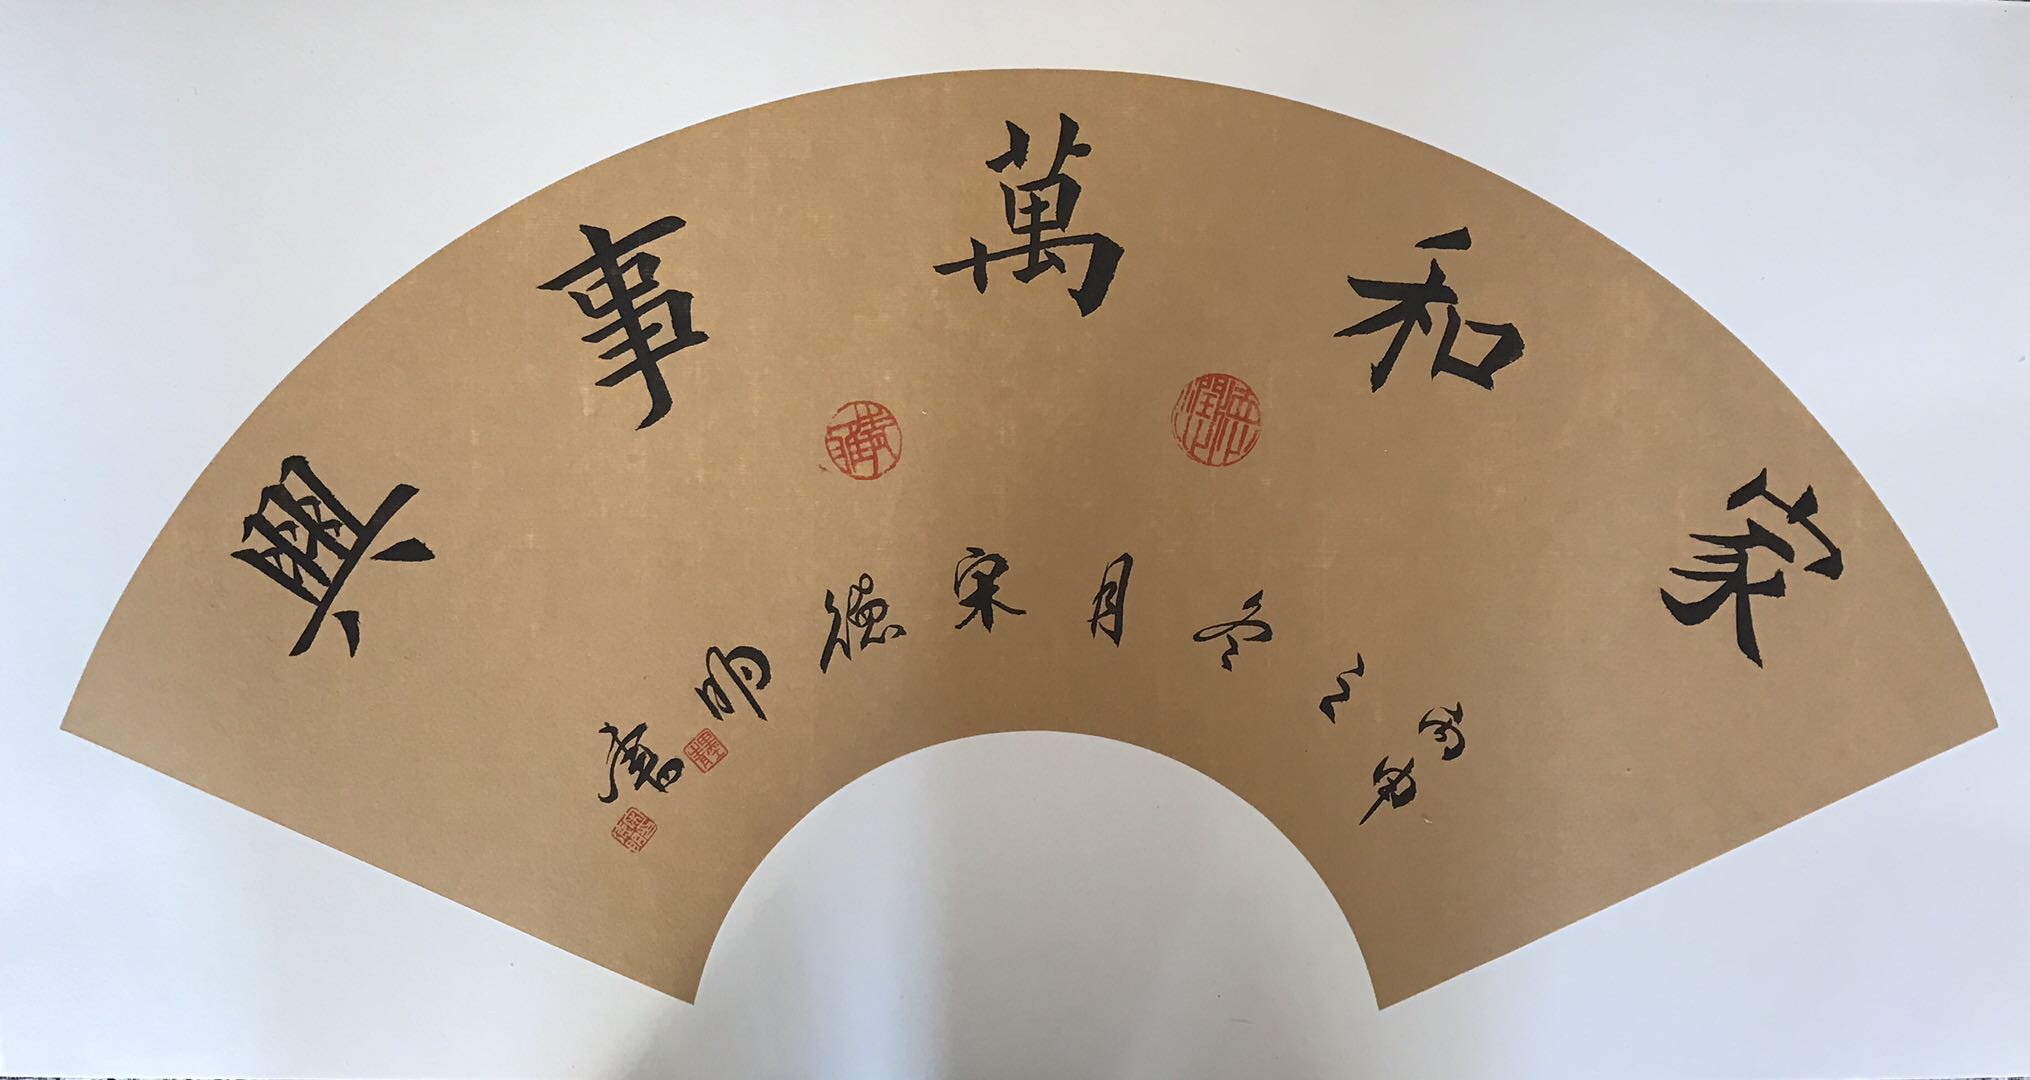 家和萬事興
之冬月宋德明書